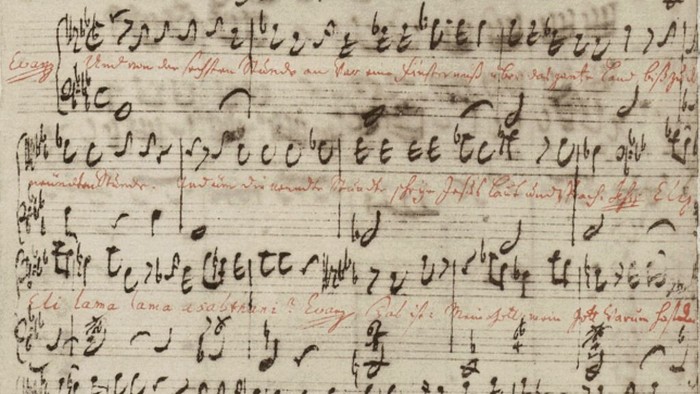 Evang Und von der sechsten Stunde an war eine Finsterniß über das gantze Land biß zu
neundten Stunde. Und um die neundte Stunde schrye Jesus laut und sprach. Jesus Eli,
Eli lama lama asabthani? Evang Das ist: Mein Gott, mein Gott warum hast